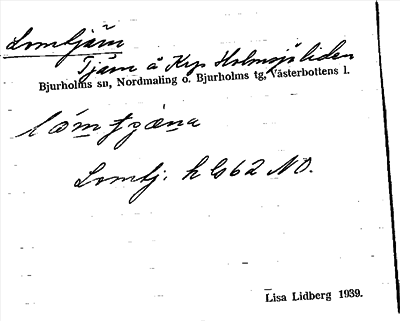 Lomtjärn
Tjärn å Krp Holmsjöliden
Bjurholms sn, Nordmaling o. Bjurholms tg, Västerbottens l.
Lomtj. h G 62 NO.
Lisa Lidberg 1939.